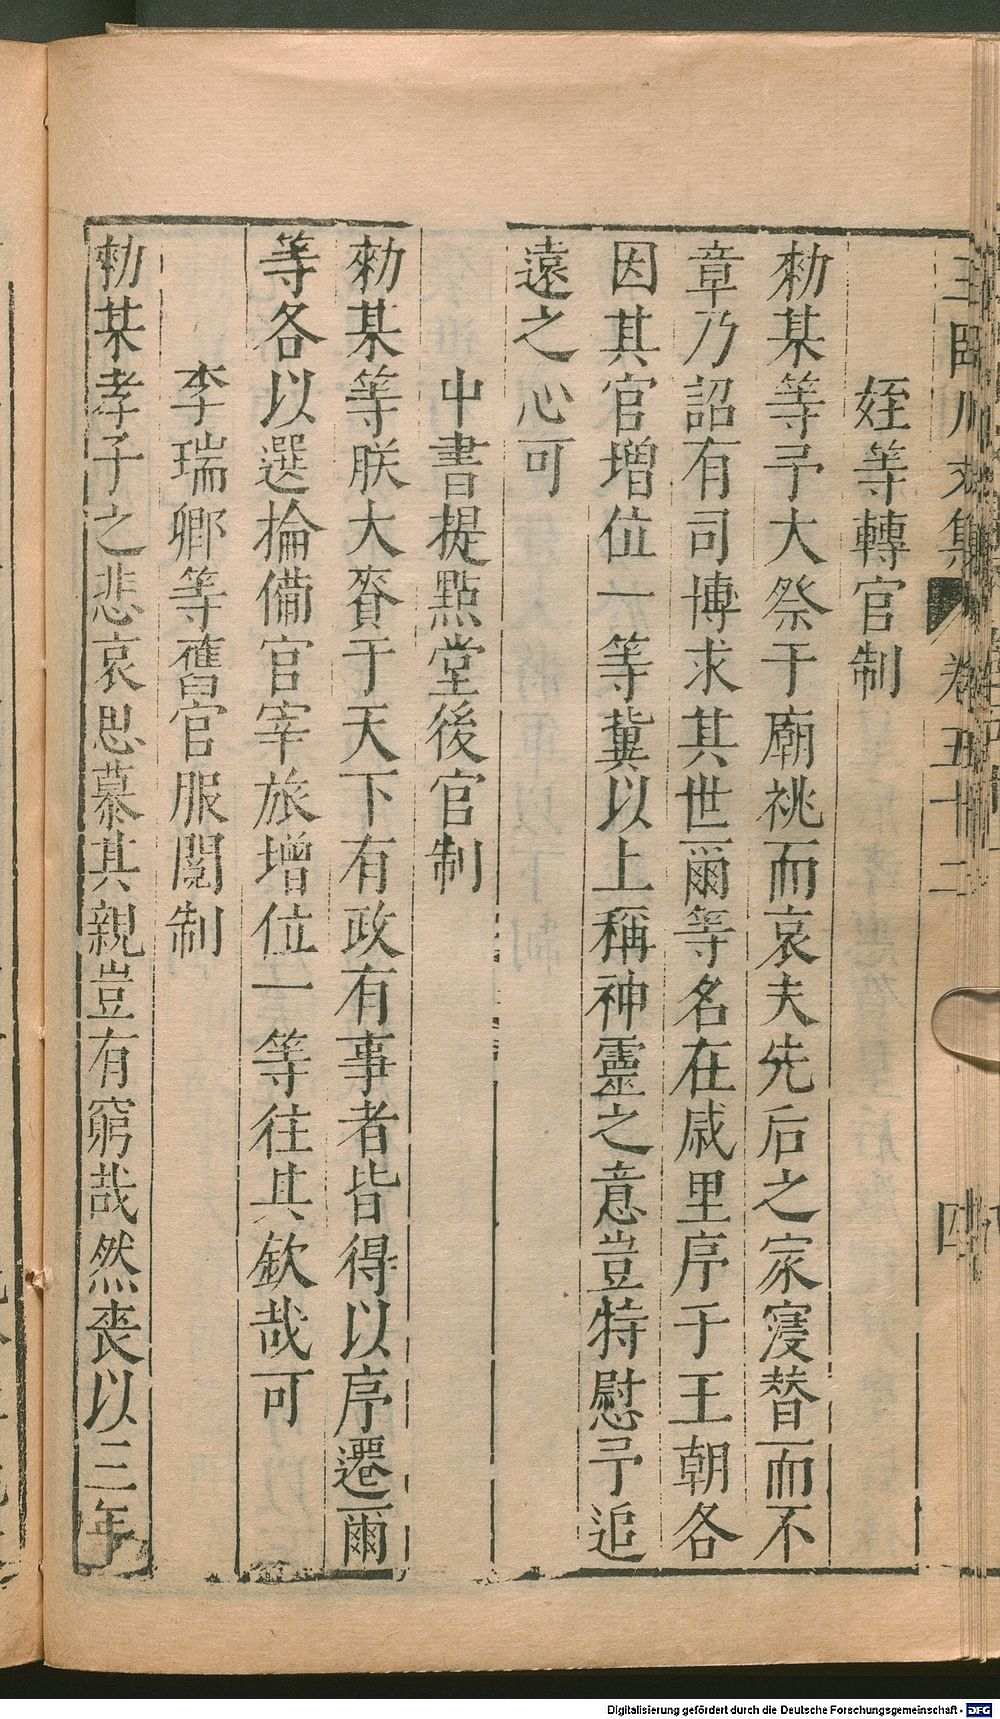 王臨川文集 卷五十二 四
姪等轉官制
勑某等予大祭于廟祧而哀夫先后之家寖替而不
章乃詔有司博求其世爾等名在戚里序于王朝各
因其官增位一等冀以上稱神靈之意豈特慰予追
遠之心可
中書提點堂後官制
勑某等朕大賚于天下有政有事者皆得以序遷爾
等各以選掄備官宰旅增位一等往其欽哉可
李瑞卿等舊官服闋制
勑某孝子之悲哀思慕其親豈有窮哉然喪以三年
Digitalisierung gefördert durch die Deutsche Forschungsgemeinschaft - DFG